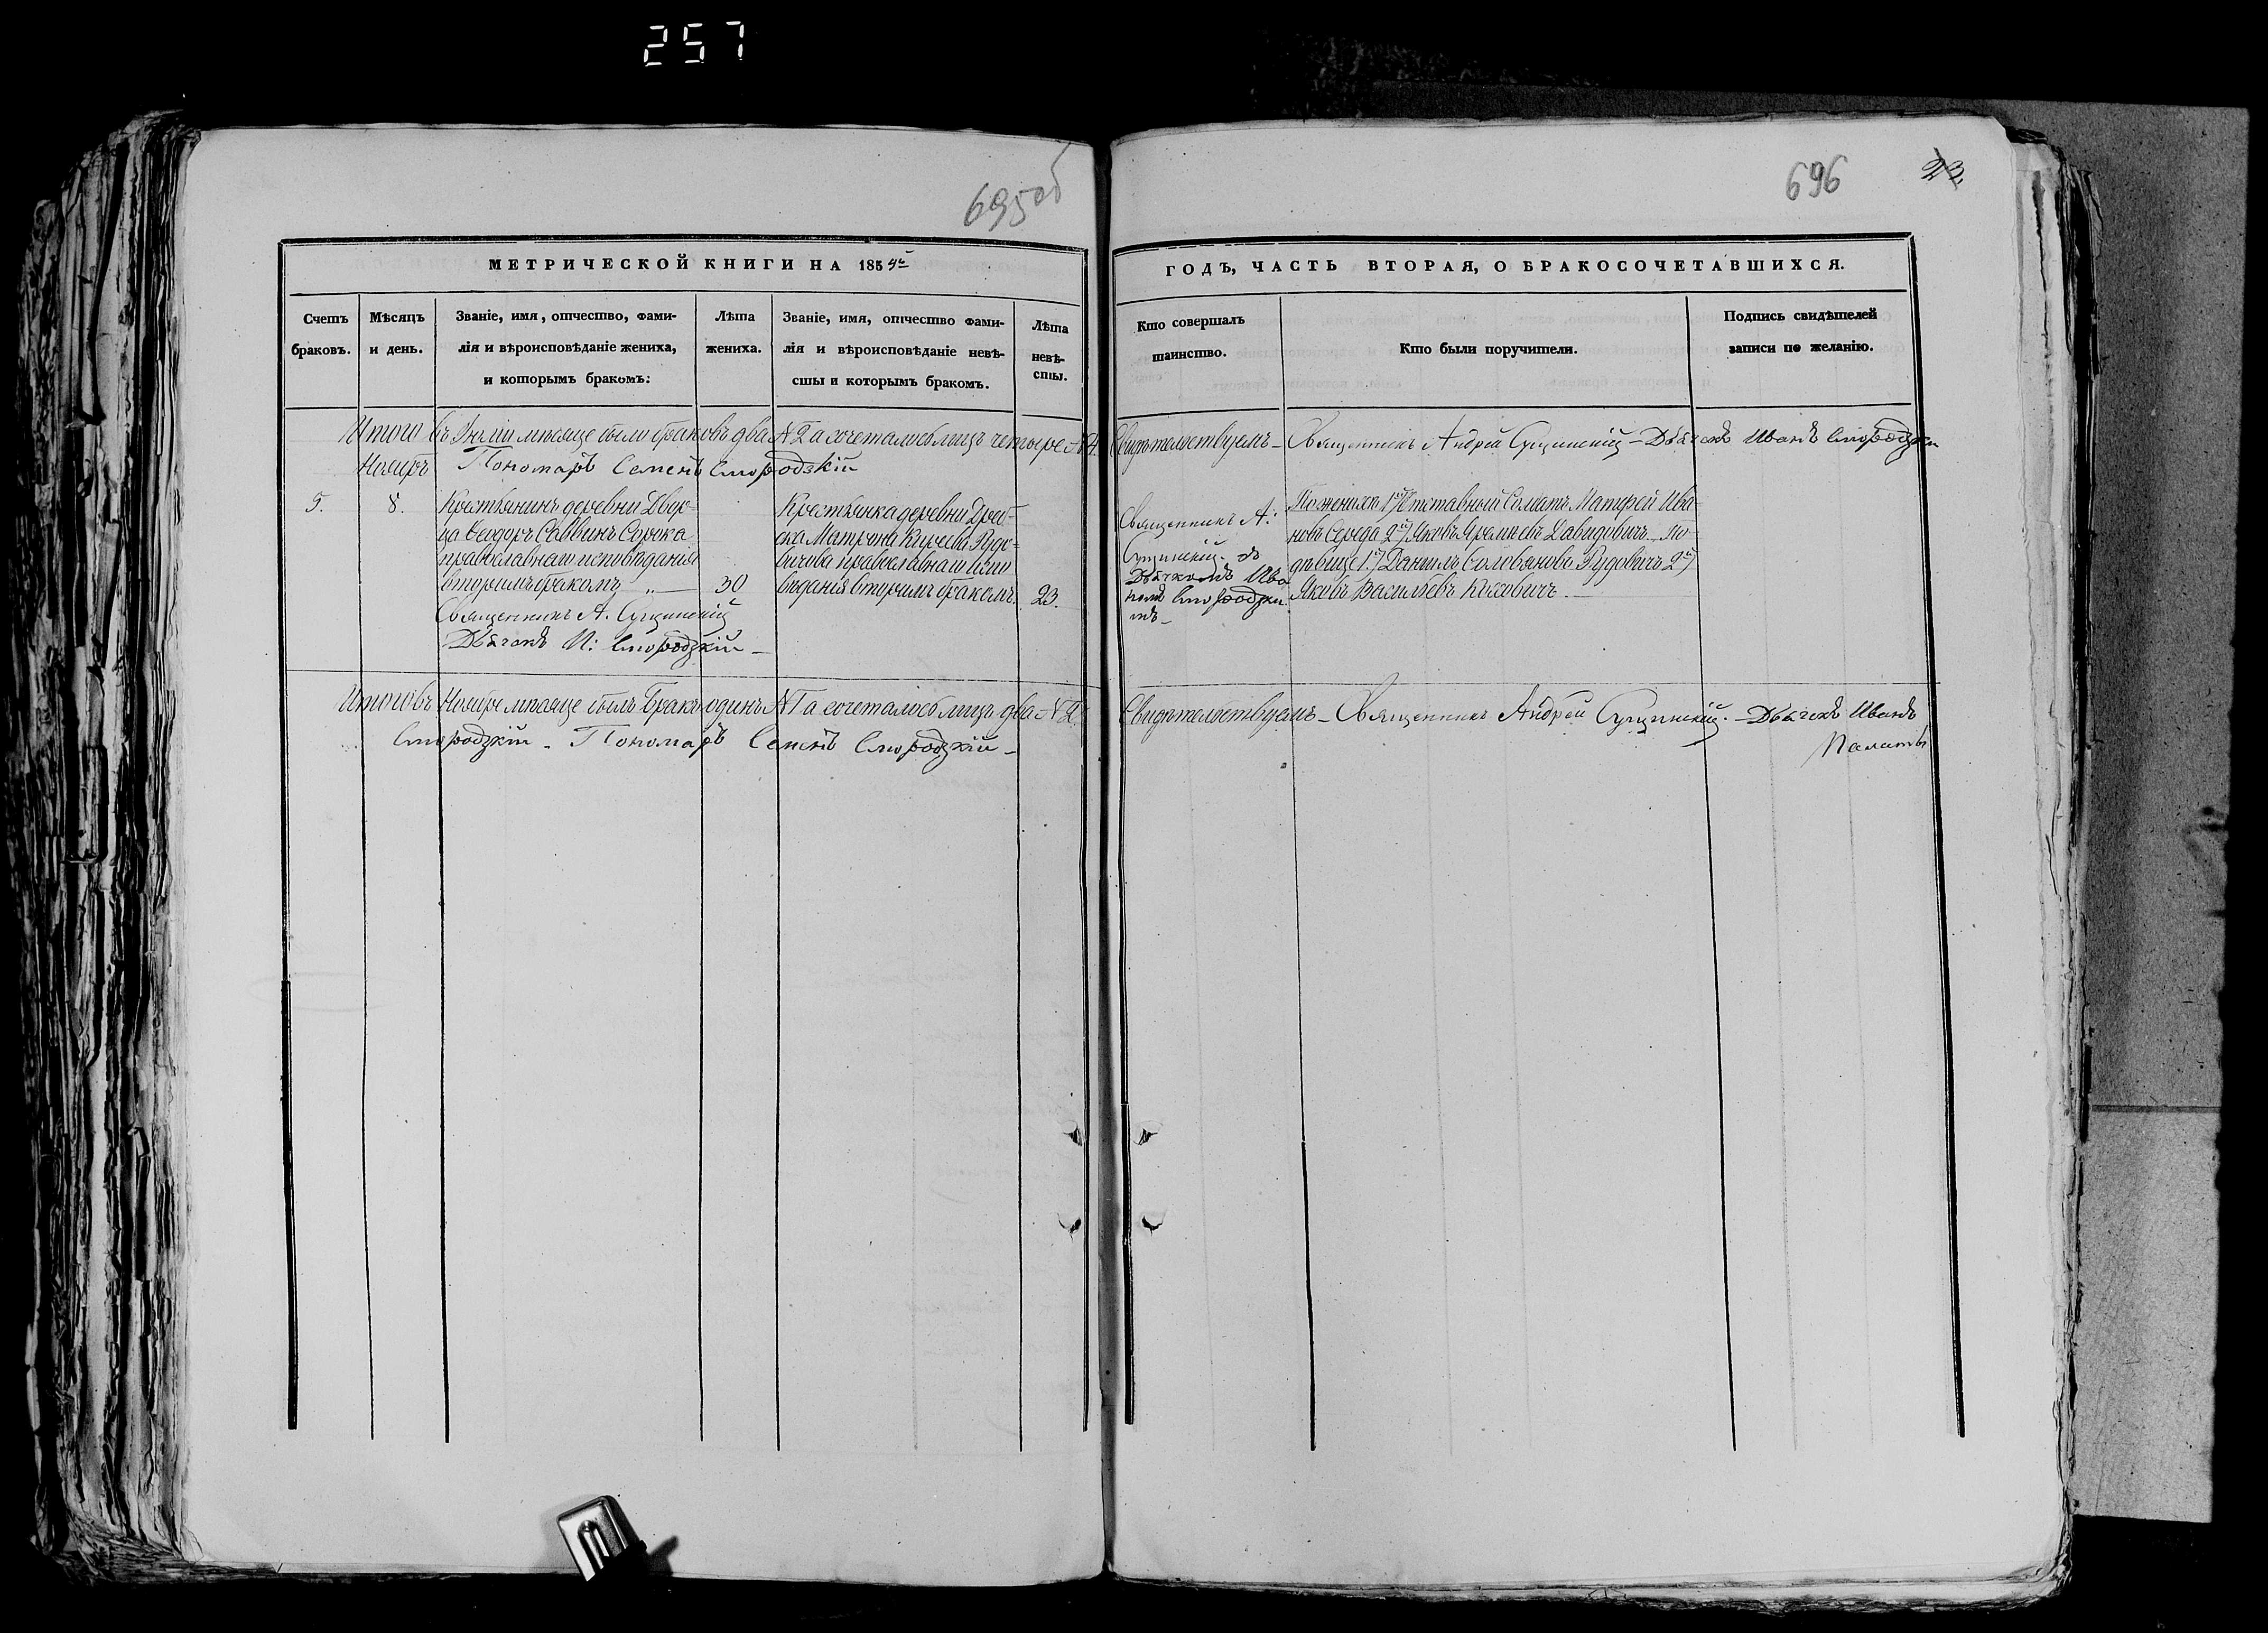 257
695об
696
23.
МЕТРИЧЕСКОЙ КНИГИ НА 1854й
ГОДЪ, ЧАСТЬ ВТОРАЯ, О БРАКОСОЧЕТАВШИХСЯ.
Счетъ
браковъ.
Мѣсяцъ
и день.
Званіе, имя, отчество, фами-
лія и вѣроисповѣданіе жениха,
и которымъ бракомъ:
Лѣта
жениха.
Званіе, имя, отчество фами-
лія и вѣроисповѣданіе невѣ-
сты и которымъ бракомъ.
Лѣта
невѣ-
сты.
Кто совершалъ
таинство.
Кто были поручители.
Подпись свидѣтелей
записи по желанію.
Итого въ мѣсяце было браковъ два № 2 а сочеталось лицъ четыре № 4.
Свидѣтельствуемъ – Священникъ Андрей Сущинскій – Дьячекъ Иванъ
Ноябрь Пономарь Семенъ
5.
8.
Крестьянинъ деревни Двор-
ца Ѳеодоръ Саввинъ Сорока
православнаго исповѣданія
вторымъ бракомъ „ —
30
Священникъ А. Сущинскій
Дьячекъ И:
Крестьянка деревни
Матрона Рудо-
вичова православнаго испо
вѣданія вторымъ бракомъ.
23.
Священникъ А:
Сущинскій. съ
Дьячкомъ Ива
номъ
мъ –
По женихѣ 1й/ Отставной Солдатъ Матфей Ива-
новъ Середа 2й/ Яковъ Яремиевъ Давидовичъ – по
Данилъ Рудовичъ 2й/
Яковъ Васильевъ
Итого въ Ноябре мѣсяце былъ Бракъ одинъ № 1 а сочеталось лицъ два № 2.
Свидѣтельствуемъ – Священникъ Андрей Сущинскій. – Дьячекъ Иванъ
Пономарь Семенъ